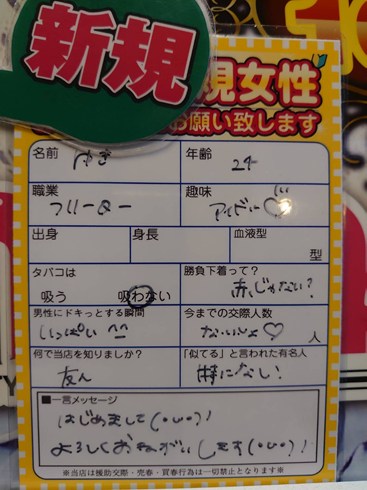 新規
規女性
お願い致します
名前 ゆき 年齢 24
職業 フリーター 趣味 アイドル♡
出身 身長 血液型 型
タバコは 吸う 吸わない 勝負下着って? 赤じゃない?
男性にドキっとする瞬間 いっぱい ^^ 今までの交際人数 ないしょ♡ 人
何で当店を知りましたか? 友人 「似てる」と言われた有名人 特になし!
■一言メッセージ
はじめまして(・ω・)!
よろしくおねがいします(・ω・)!
※当店は援助交際・売春・買春行為は一切禁止となります※